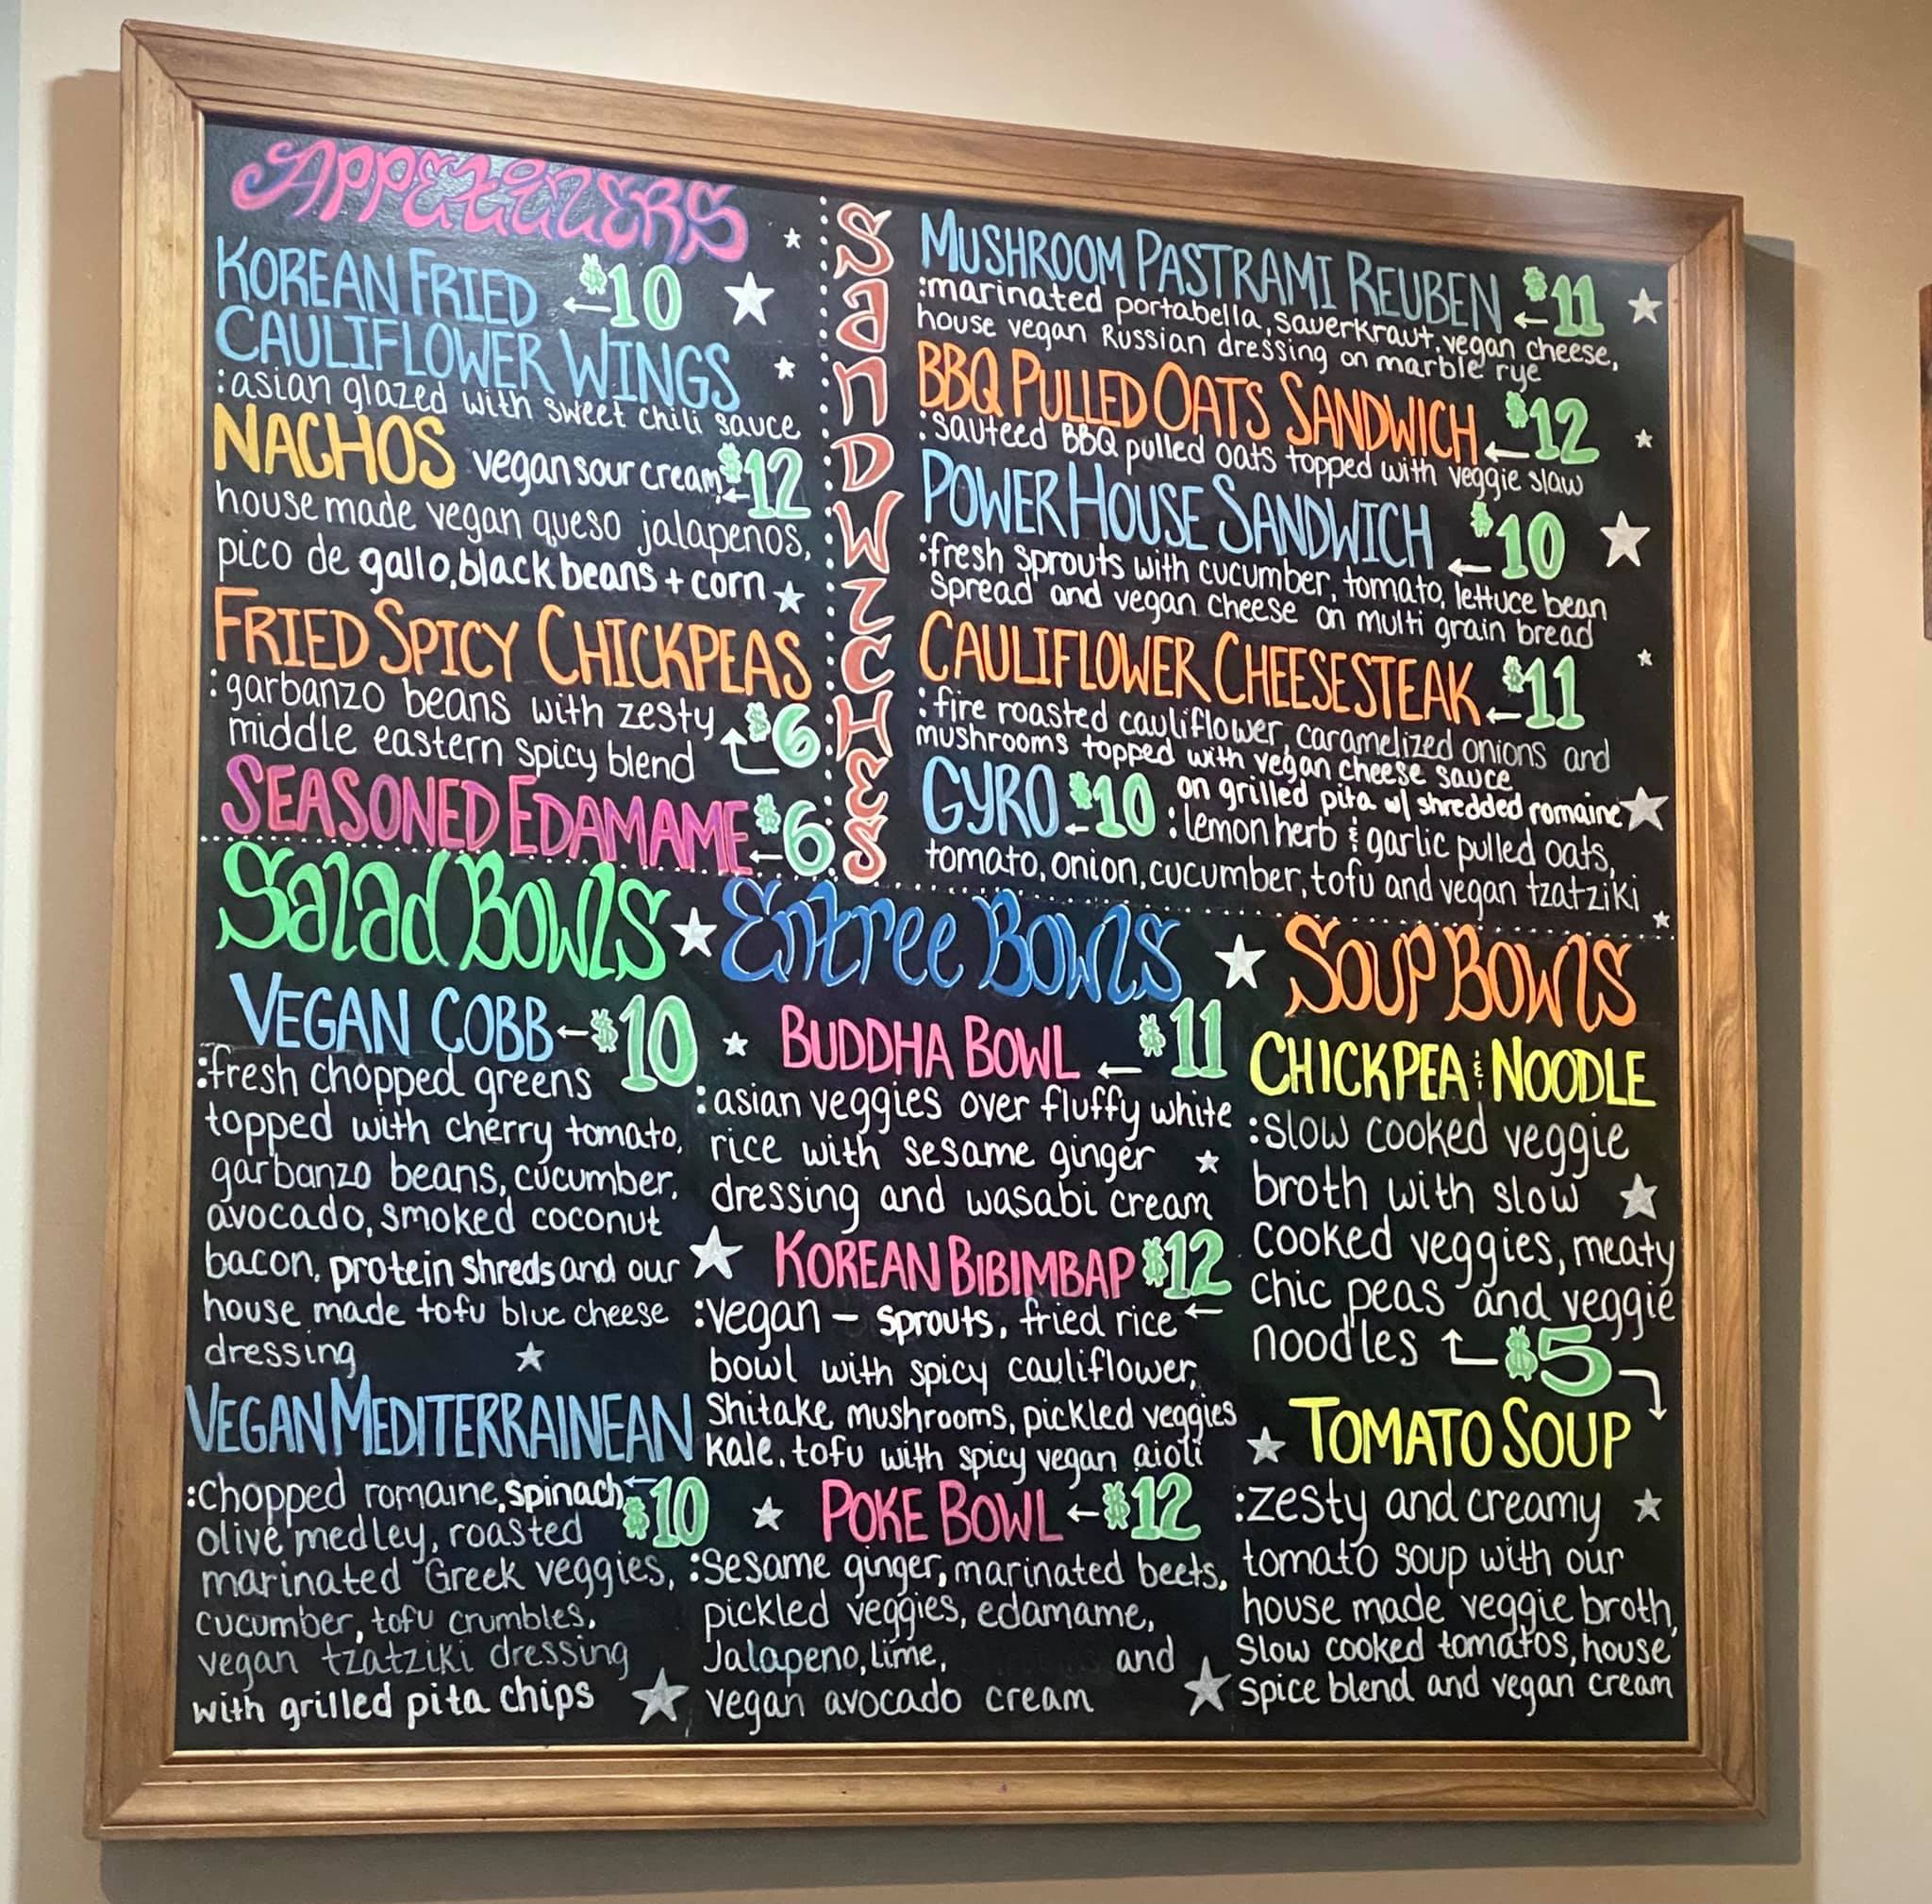 APPETIZERS
KOREAN FRIED ←$10
CAULIFLOWER WINGS
:asian glazed with sweet chili sauce
NACHOS vegan sour cream, ←$12
house made vegan queso jalapenos,
pico de gallo, black beans + corn
FRIED SPICY CHICKPEAS
:garbanzo beans with zesty $6
middle eastern spicy blend
SEASONED EDAMAME ←$6
SandWICHES
MUSHROOM PASTRAMI REUBEN ←$11
:marinated portabella, sauerkraut, vegan cheese,
house vegan Russian dressing on marble rye
BBQ PULLED OATS SANDWICH ←$12
:sauteed BBQ pulled oats topped with veggie slaw
POWER HOUSE SANDWICH ←$10
:fresh sprouts with cucumber, tomato, lettuce bean
spread and vegan cheese on multi grain bread
CAULIFLOWER CHEESESTEAK ←$11
:fire roasted cauliflower, caramelized onions and
mushrooms topped with vegan cheese sauce
GYRO ←$10 on grilled pita w/ shredded romaine
:lemon herb & garlic pulled oats,
tomato, onion, cucumber, tofu and vegan tzatziki
Salad Bowls
VEGAN COBB ←$10
:fresh chopped greens
topped with cherry tomato,
garbanzo beans, cucumber,
avocado, smoked coconut
bacon, protein shreds and our
house made tofu blue cheese
dressing
VEGAN MEDITERRAINEAN
:chopped romaine, spinach ←$10
olive medley, roasted
marinated Greek veggies,
cucumber, tofu crumbles,
vegan tzatziki dressing
with grilled pita chips
Entree Bowls
BUDDHA BOWL ←$11
:asian veggies over fluffy white
rice with sesame ginger
dressing and wasabi cream
KOREAN BIBIMBAP $12
:vegan – sprouts, fried rice ←
bowl with spicy cauliflower,
Shitake mushrooms, pickled veggies
kale, tofu with spicy vegan aioli
POKE BOWL ←$12
:Sesame ginger, marinated beets,
pickled veggies, edamame,
Jalapeno, lime, and
vegan avocado cream
SOUP BOWLS
CHICKPEA & NOODLE
:slow cooked veggie
broth with slow
cooked veggies, meaty
chic peas and veggie
noodles $5
TOMATO SOUP
:zesty and creamy
tomato soup with our
house made veggie broth,
Slow cooked tomatos, house
spice blend and vegan cream